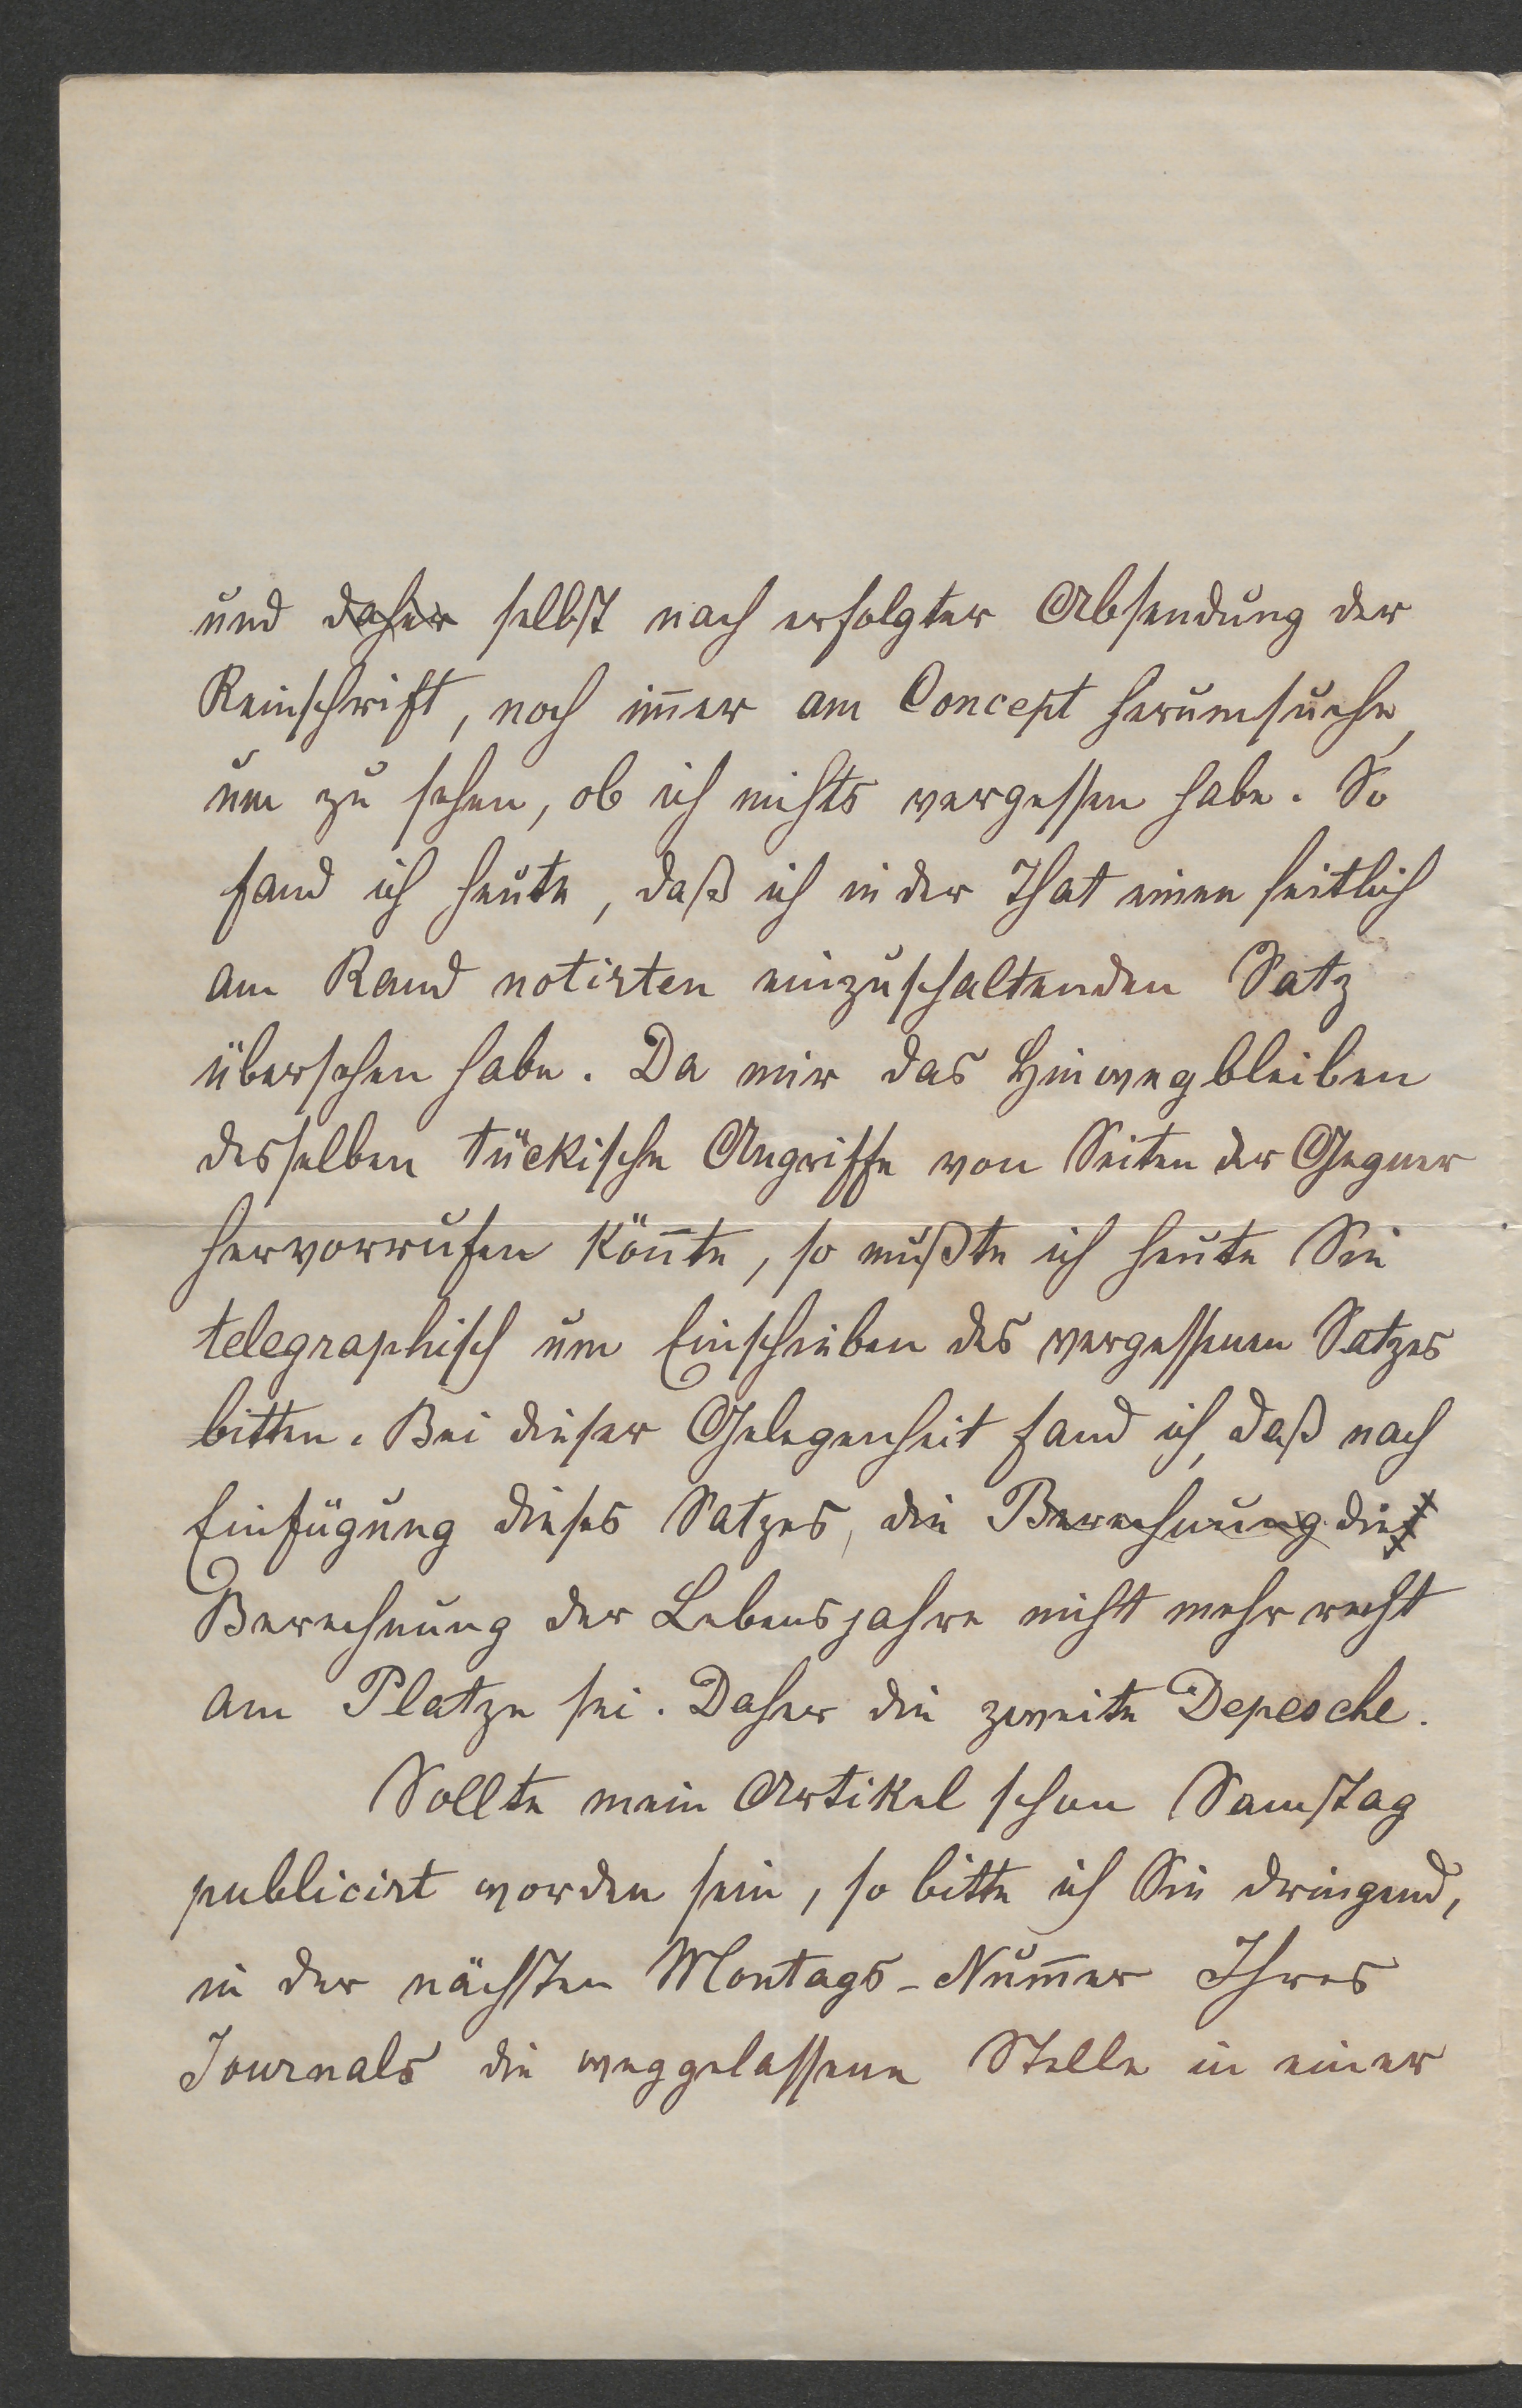 und daher selbst nach erfolgter Absendung der
Reinschrift, noch im̅er am Concept herumsuche,
um zu sehen, ob ich nichts vergessen habe. So
fand ich heute, daß ich in der That einen seitlich
am Rand notirten einzuschaltenden Satz
übersehen habe. Da mir das Hinwegbleiben
desselben tückische Angriffe von Seiten der Gegner
hervorrufen kön̅te, so mußte ich heute Sie
telegraphisch um Einschieben des vergessenen Satzes
bitten. Bei dieser Gelegenheit fand ich, daß nach
Einfügung dieses Satzes, die Berechnung die
Berechnung der Lebensjahre nicht mehr recht
am Platze sei. Daher die zweite Depesche.
Sollte mein Artikel schon Samstag
publicirt worden sein, so bitte ich Sie dringend,
in der nächsten Montags-Num̅er Ihres
Journals die weggelassene Stelle in einer